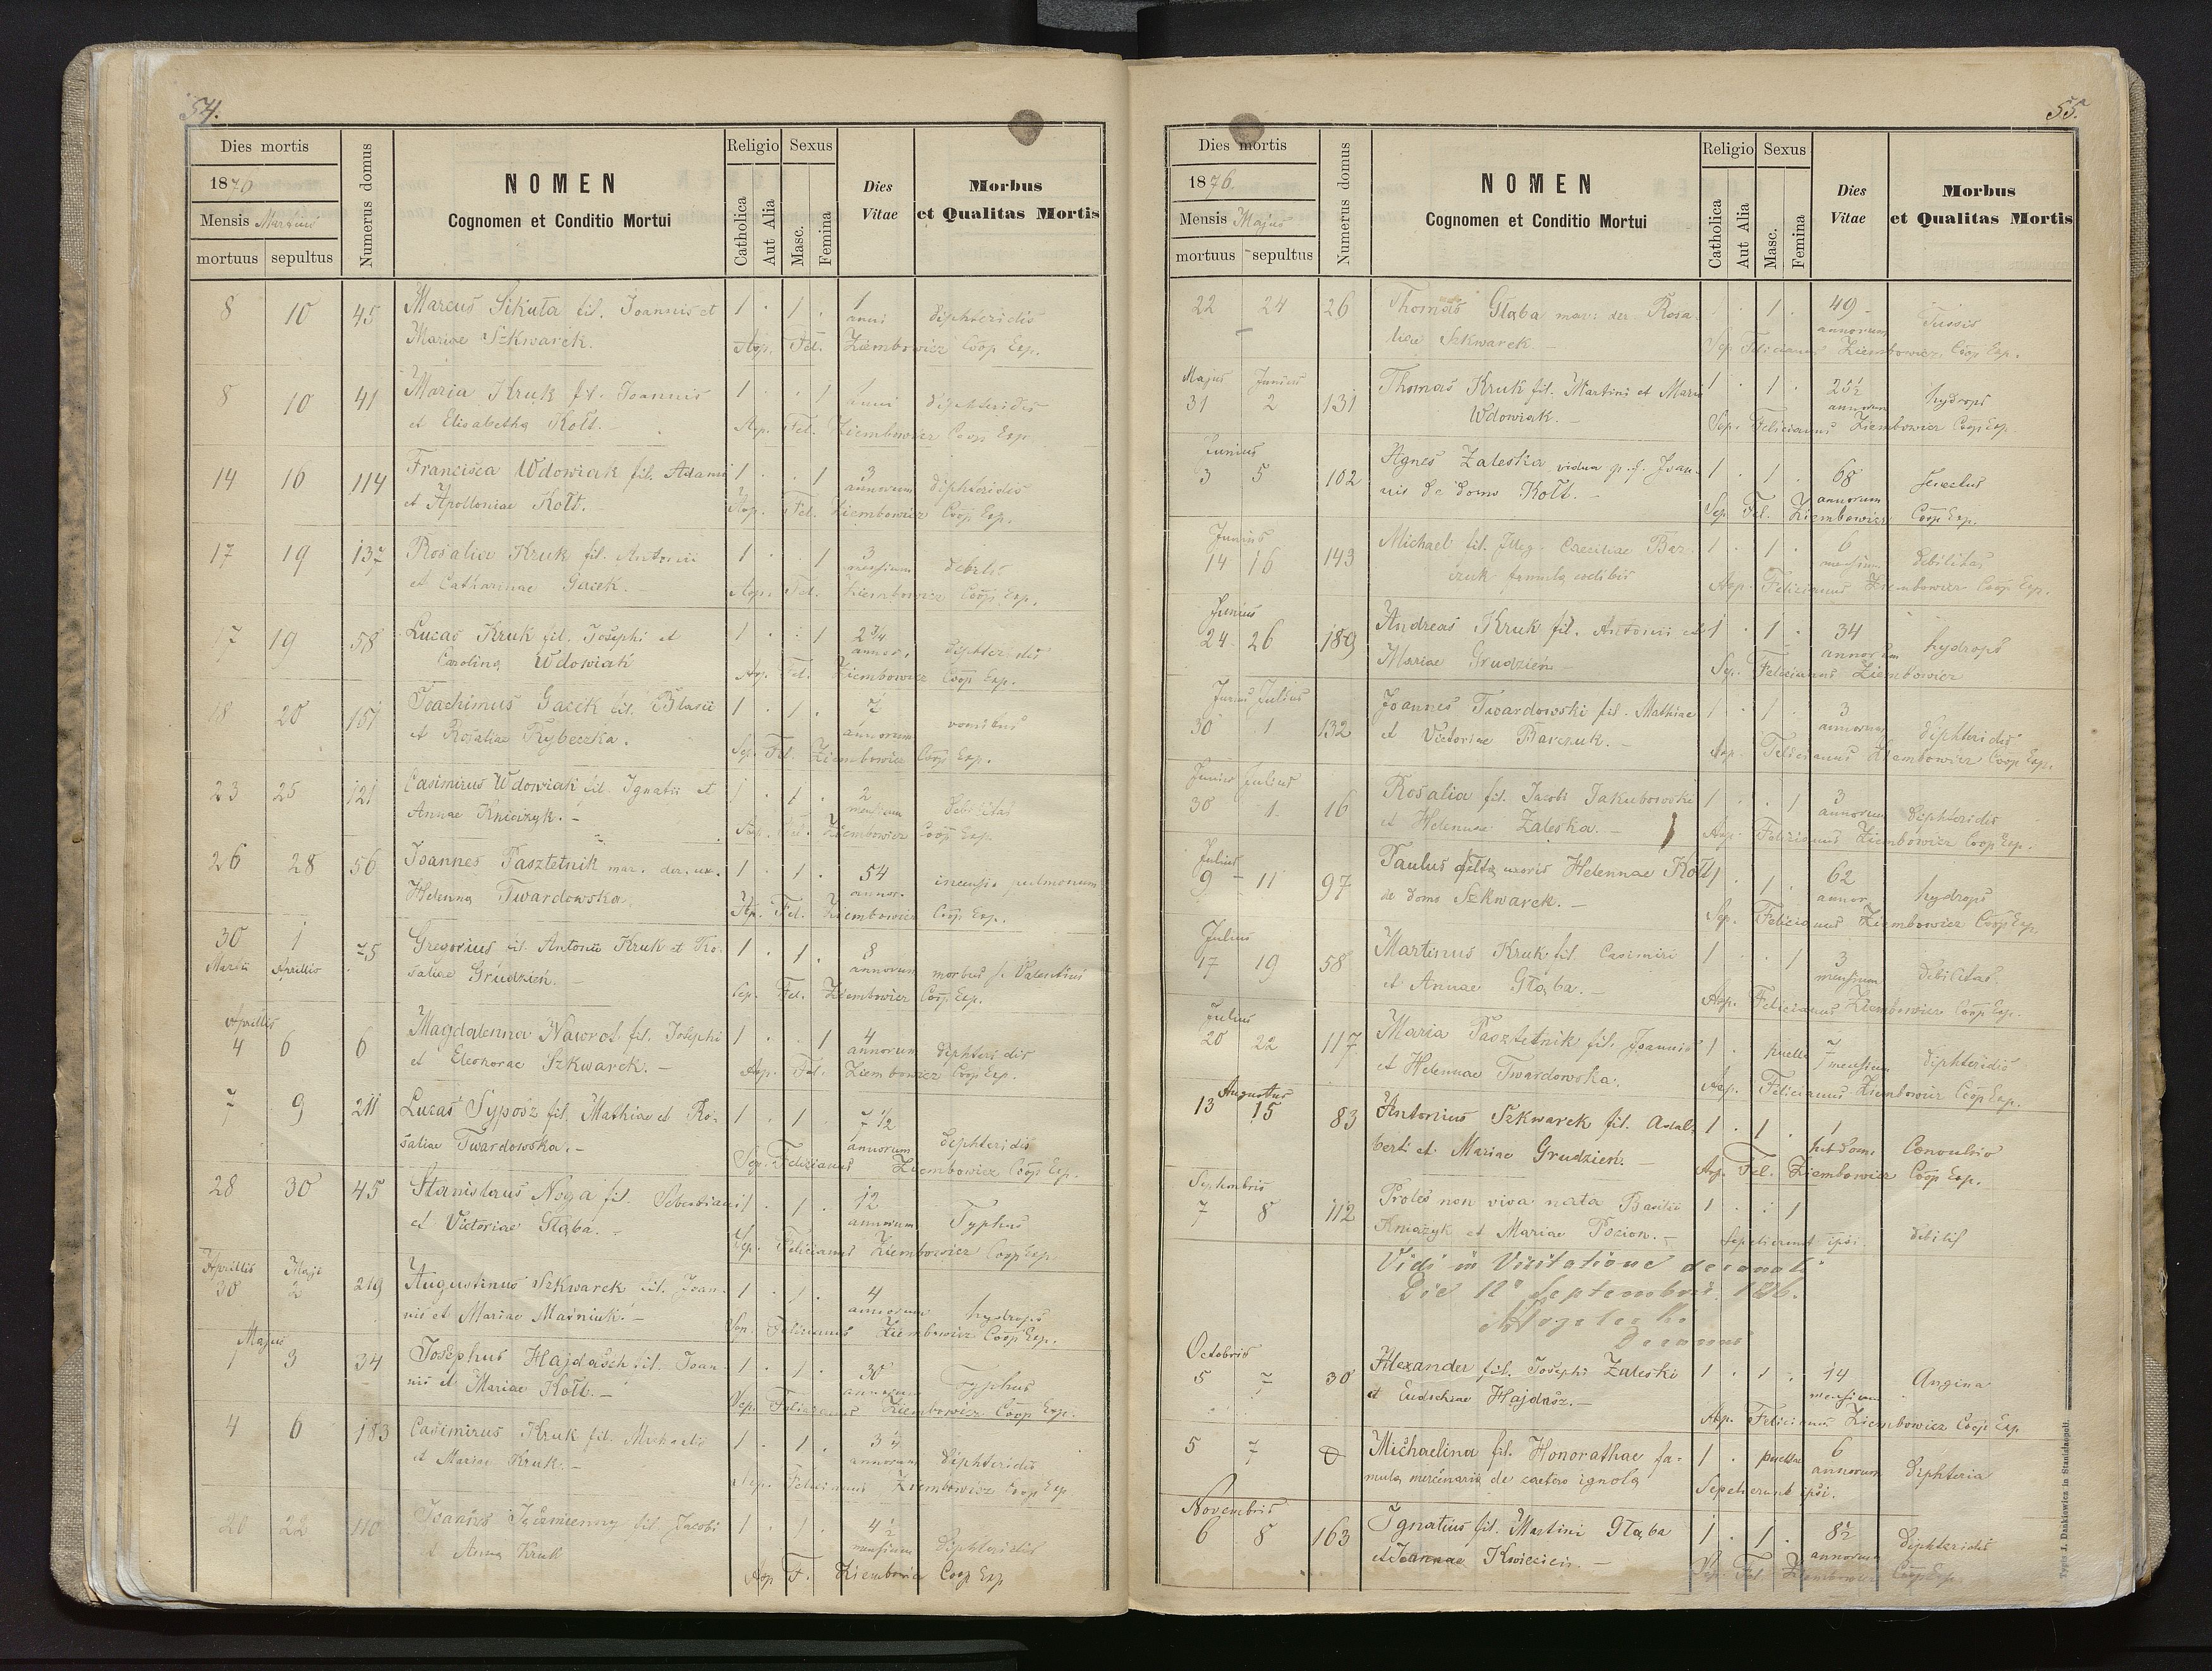 54.
Dies mortis
1876
Mensis Martius
mortuus sepultus
Numerus domus
NOMEN
Cognomen et Conditio Mortui
Religio
Catholica
Aut Alia
Sexus
Masc.
Femina
Dies
Vitae
Morbus
et Qualitas Mortis
8 10 45 Marcus Sikuta fil. Joannis et 1 . 1 . 1 anni diphteridis
Mariae Szkwarek. Asp. Fel. Ziembowicz Coop Exp.
8 10 41 Maria Kruk fil. Joannis 1 . . 1 anni diphteridis
et Elisabetha Kołt. Asp. Fel. Ziembowicz Coop Exp
14 16 114 Francisca Wdowiak fil. Adami 1 . . 1 3 annorum diphteridis
et Apolloniae Kołt. Asp. Fel. Ziembowicz Coop Exp.
17 19 137 Rosalia Kruk fil. Antonii 1 . . 1 3 mensium debilis
et Catharinae Gacek. Asp. Fel. Ziembowicz Coop. Exp.
17 19 58 Lucas Kruk fil. Josephi et 1 . . 1 2 3/4 annor. diphteridis
Carolina Wdowiak Asp. Fel. Ziembowicz Coop Exp.
18 20 151 Joachimus Gacek fil. Blasii 1 . 1 . 7 annorum vomitus
et Rosaliae Rybeczka. Sep. Fel. Ziembowicz Coop Exp.
23 25 121 Casimirus Wdowiak fil. Ignatii et 1 . 1 . 2 mensium debilitas
Annae Kniażyk. - Sep. Fel. Ziembowicz Coop Exp.
26 28 56 Joannes Pasztetnik mar. der. ux. 1 . 1 . 54 annor. incensio pulmonum
Helenna Twardowska. Asp. Fel. Ziembowicz Coop. Exp.
30 1 Martii Aprillis 75 Gregorius fil. Antonii Kruk et Ro- 1 . 1 . 8 annorum morbus s. Valentini
saliae Grudzień. - Sep. Fel. Ziembowicz Coop. Exp.
Aprillis
4 6 6 Magdalenna Nawrot fil. Josephi 1 . . 1 4 annorum diphteridis
et Eleonorae Szkwarek. - Asp. Fel. Ziembowicz Coop Exp.
7 9 211 Lucas Syposz fil. Mathiae et Ro- 1 . 1 . 7 1/2 annorum diphteridis
saliae Twardowska. - Sep. Felicianus Ziembowicz Coop Exp.
28 30 45 Stanislaus Noga fil. Sebastiani 1 . 1 . 12 annorum Typhus
et Victoriae Głąba. - Sep. Felicianus Ziembowicz Coop Exp.
Aprillis Maji
30 2 219 Augustinus Szkwarek fil. Joan- 1 . 1 . 4 annorum hydrops
nis et Mariae Maśniuk. - Sep. Felicianus Ziembowicz Coop Exp.
Majus
1 3 34 Josephus Hajdasch fil. Joan- 1 . 1 . 30 annorum Typhus
nis et Mariae Kołt. - Sep. Felicianus Ziembowicz Coop Exp.
4 6 183 Casimirus Kruk fil. Michaelis 1 . 1 . 3 1/4 annorum diphteridis
et Mariae Kruk. - Sep. Felicianus Ziembowicz Coop Exp
20 22 110 fil. Jacobi 1 . 1 . 4 1/2 mensium diphteridis
et Anna Kruk Asp F. Ziembowicz Coop Exp
55.
Dies mortis
1876.
Mensis Majus
mortuus sepultus
Numerus domus
NOMEN
Cognomen et Conditio Mortui
Religio
Catholica
Aut Alia
Sexus
Masc.
Femina
Dies
Vitae
Morbus
et Qualitas Mortis
22 24 26 Thomas Głąba mar: der Rosa- . . 1 . 49 annorum Tussis
liae Szkwarek - Sep Felicianus Ziembowicz Coop Exp.
Majus Junius
31 2 131 Thomas Kruk fil. Martini et Maria 1 . 1 . 25 1/2 annorum hydrops
Wdowiak. - Sep. Felicianus Ziembowicz Coop Exp
Junius
3 5 102 Agnes Zaleska vidua p. f. Joan- 1 . 1 . 68 annorum Senectus
nis de domo Kołt. - Sep Fel. Ziembowicz Coop Exp.
Junius
14 16 143 Michael fil. Illeg. Caeciliae Bar- 1 . 1 . 6 mensium debilitas
czuk famula coelibis Asp. Felicianus Ziembowicz Coop Exp.
Junius
24 26 189 Andreas Kruk fil. Antonii et 1 . 1 . 34 annorum hydrops
Mariae Grudzień - Sep. Felicianus Ziembowicz
Junius Julius
30 1 132 Joannes Twardowski fil. Mathiae 1 . 1 . 3 annorum diphteridis
et Victoriae Barczuk. - Asp. Felicianus Ziembowicz Coop Exp.
Junius Julius
30 1. 16 Rosalia fil. Jacobi Jakubowski 1 . . 1 3 annorum diphteridis
et Helennae Zaleska. - Asp. Felicianus Ziembowicz Coop Exp.
Julius
9 - 11 97 Paulus uxoris Helennae Kołt 1 . 1 . 62 annor. hydrops
de domo Szkwarek. - Sep. Felicianus Ziembowicz Coop Exp.
Julius
17 19 58 Martinus Kruk fil. Casimiri 1 . . 1 3 mensium debilitas
et Annae Głąba. - Asp. Felicianus Ziembowicz Coop Exp.
Julius
20 22 117 Maria Pasztetnik fil. Joannis 1 . puella 7 mensium diphteridis
et Helennae Twardowska. Asp. Felicianus Ziembowicz Coop Exp.
Augustus
13 15 83 Antonius Szkwarek fil. Adal- 1 . 1 . 1 hebdom. Convulsio
berti et Mariae Grudzień. - Asp. Fel. Ziembowicz Coop Exp.
Septembris
7 8 112 Proles non viva nata Basilii 1 . . 1 debilis
Kniażyk et Mariae Pozion. - Sepelierunt ipsi.
Vidi in Visitatione decanali
Die 12 Septembris 1876.
Decanus
Octobris
5 7 30 Alexander fil. Josephi Zaleski 1 . 1 . 14 mensium Angina
et Eudochiae Hajdasz. - Asp. Felicianus Ziembowicz Coop Exp
5 7 0 Michaelina fil. Honorathae fa- 1 . puella 6 annorum Diphteria
mula mercinaria de caetero ignota Sepelierunt ipsi.
Novembris
6 8 163 Ignatius fil. Martini Głąba 1 . 1 . 8 1/2 annorum diphteridis
et Joannae Kwiecień. - Sep. Fel. Ziembowicz Coop Exp
Typis J. Dankiewicz in Stanislaopoli.